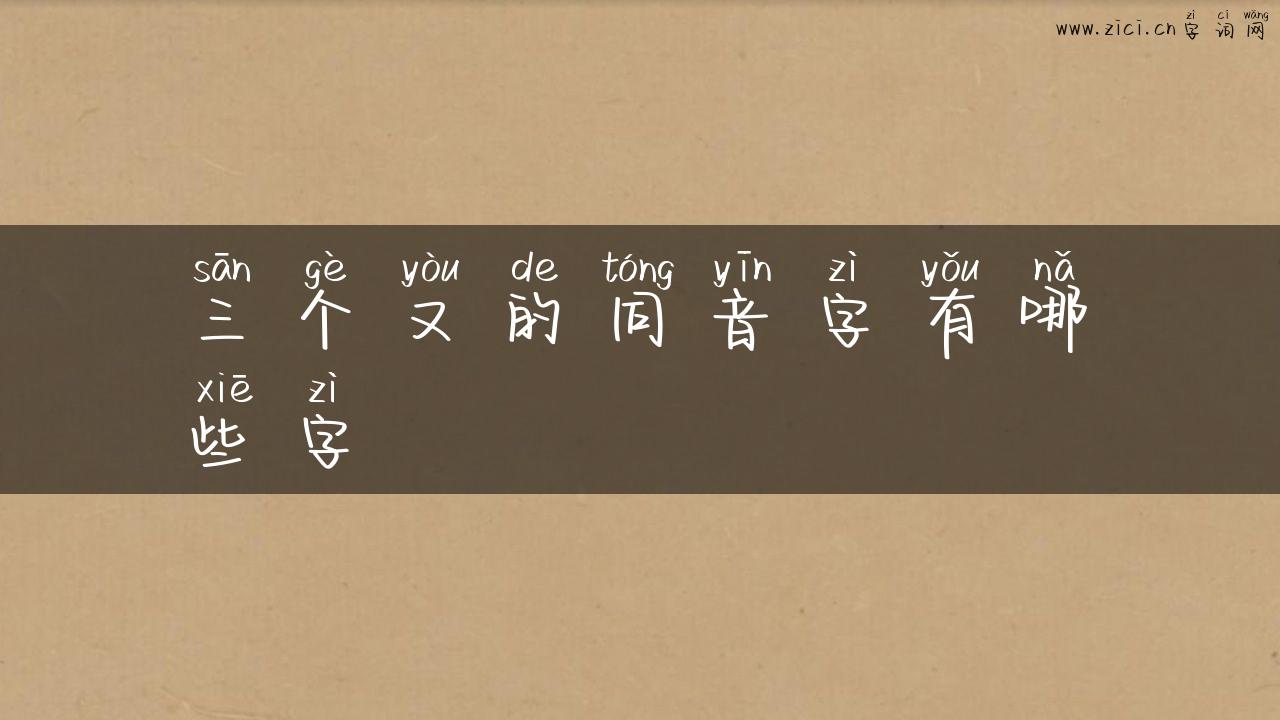 zì cí wǎng
www.zici.cn 字 词 网
sān gè yòu de tóng yīn zì yǒu nǎ
三 个 又 的 同 音 字 有 哪
xiē zì
些 字